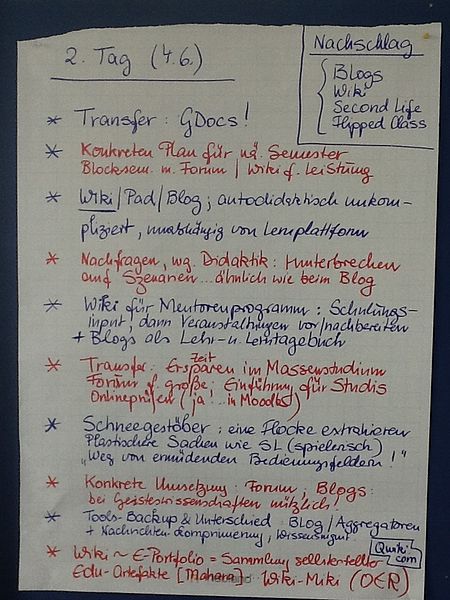 2. Tag (4.6.)
Nachschlag
Blogs
Wiki
Second Life
Flipped Class
* Transfer: GDocs!
* Konkreten Plan für nä. Semester
Blocksem. m. Forum / Wiki f. Leistung
* Wiki/Pad/Blog; autodidaktisch unkom-
pliziert, unabhängig von Lernplattform
* Nachfragen, wg. Didaktik: Herunterbrechen
auf Szenarien... ähnlich wie beim Blog
* Wiki für Mentorenprogramm: Schulungs-
input, dann Veranstaltungen vor/nachbereiten
+ Blogs als Lehr- u. Lerntagebuch
* Transfer: Zeit Ersparen im Massenstudium
Forum f. große; Einführung für Studis
Onlineprüfen (ja! ..in Moodle)
* Schneegestöber: eine Flocke extrahieren
Plastischere Sachen wie SL (spielerisch)
„Weg von ermüdenden Bedienungsfeldern!"
* Konkrete Umsetzung: Forum; Blogs:
bei Geisteswissenschaften nützlich!
* Tools-Backup & Unterschied: Blog/Aggregatoren
+ Nachrichten-komprimierung, Wissensmgmt
Qwiki.com
* Wiki ~ E-Portfolio = Sammlung selbsterstellter
Edu-Artefakte [Mahara] Wiki-Miki (OER)